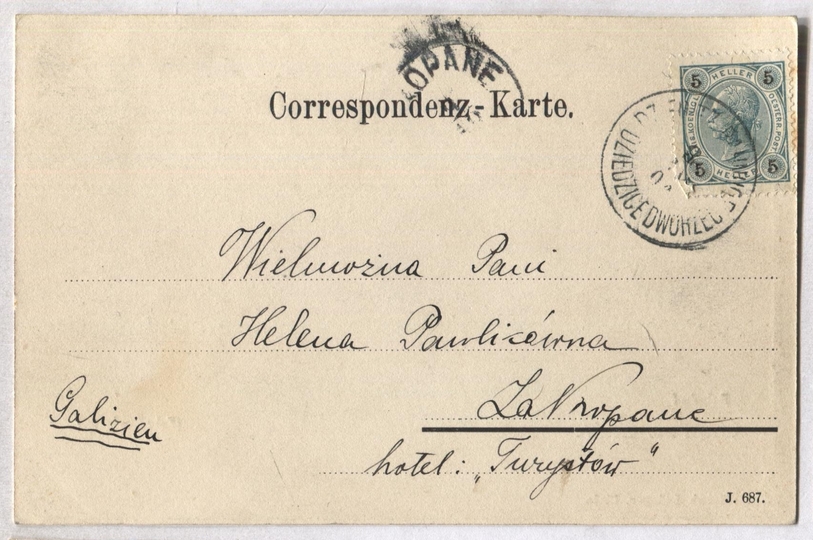 OPANE
Correspondenz-Karte.
5 HELLER 5
OESTERR. POST.
5 HELLER 5
DZIEDZICE DWORZEC
Wielmożna Pani
Helena Pawlicówna
Zakopane
Galizien
hotel: „Turystów"
J. 687.